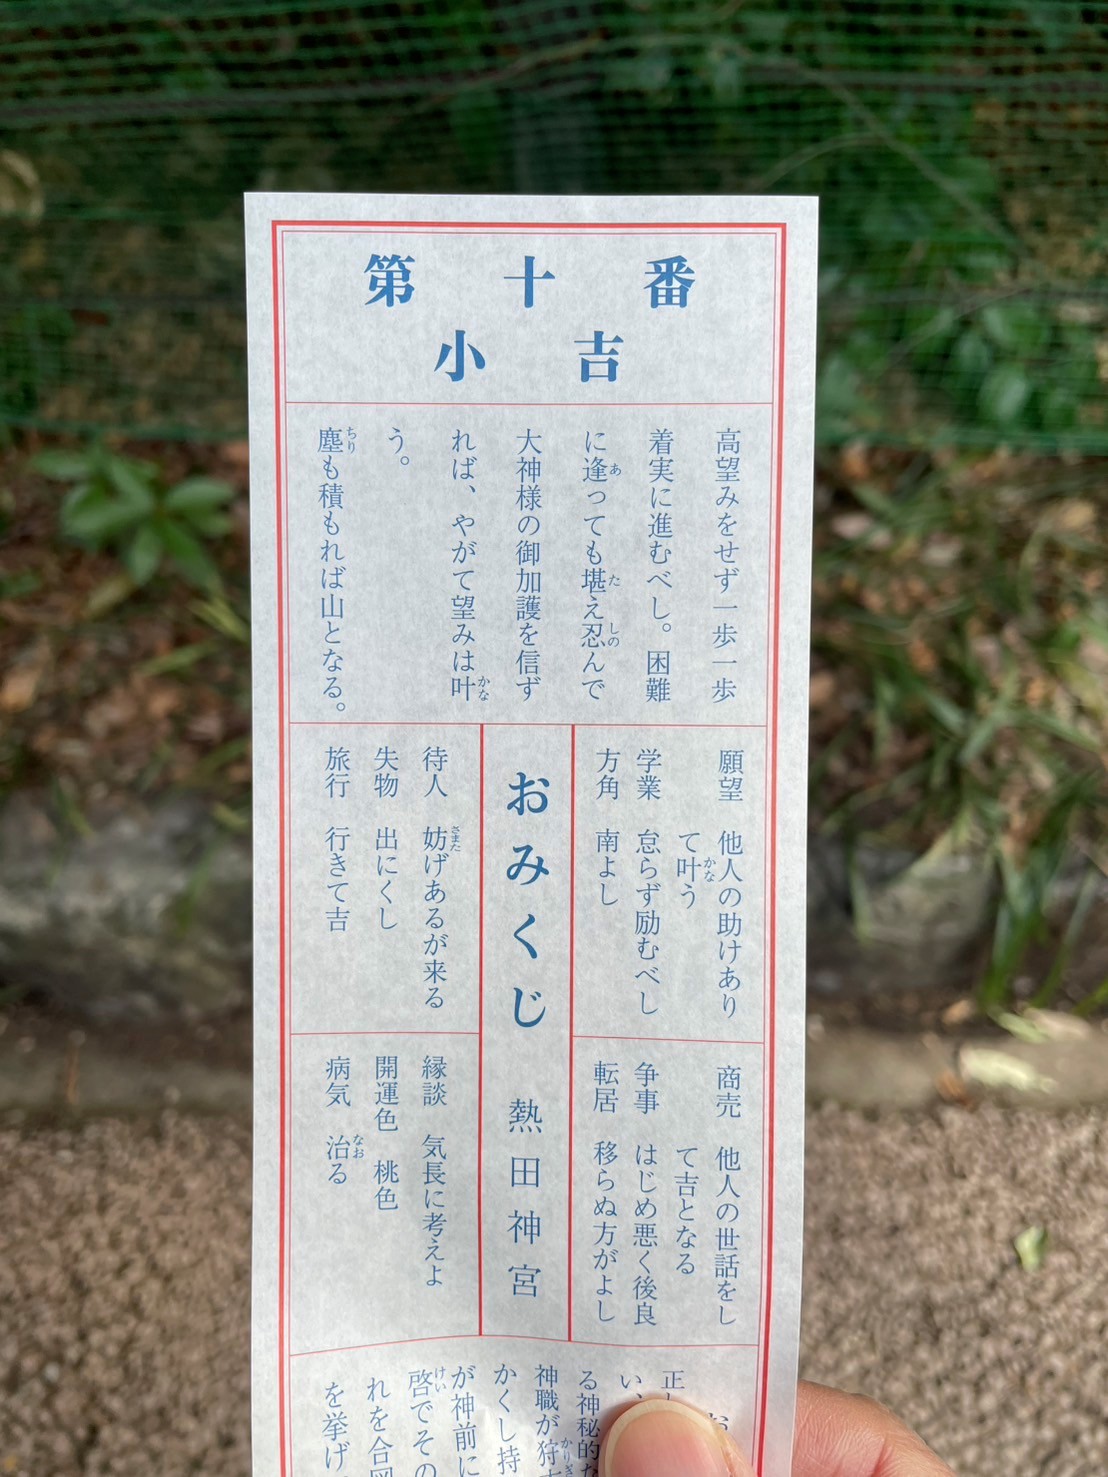 第十番
小吉
高望みをせず一歩一歩
着実に進むべし。困難
に逢っても堪え忍んで
大神様の御加護を信ず
れば、やがて望みは叶
う。
塵も積もれば山となる。
願望 他人の助けあり
て叶う
学業 怠らず励むべし
方角 南よし
商売 他人の世話をし
て吉となる
争事 はじめ悪く後良
転居 移らぬ方がよし
おみくじ 熱田神宮
待人 妨げあるが来る
失物 出にくし
旅行 行きて吉
縁談 気長に考えよ
開運色 桃色
病気 治る
お
正
い
る神秘的な
神職が狩
かくし持
が神前に
啓でその
れを合図
を挙げ